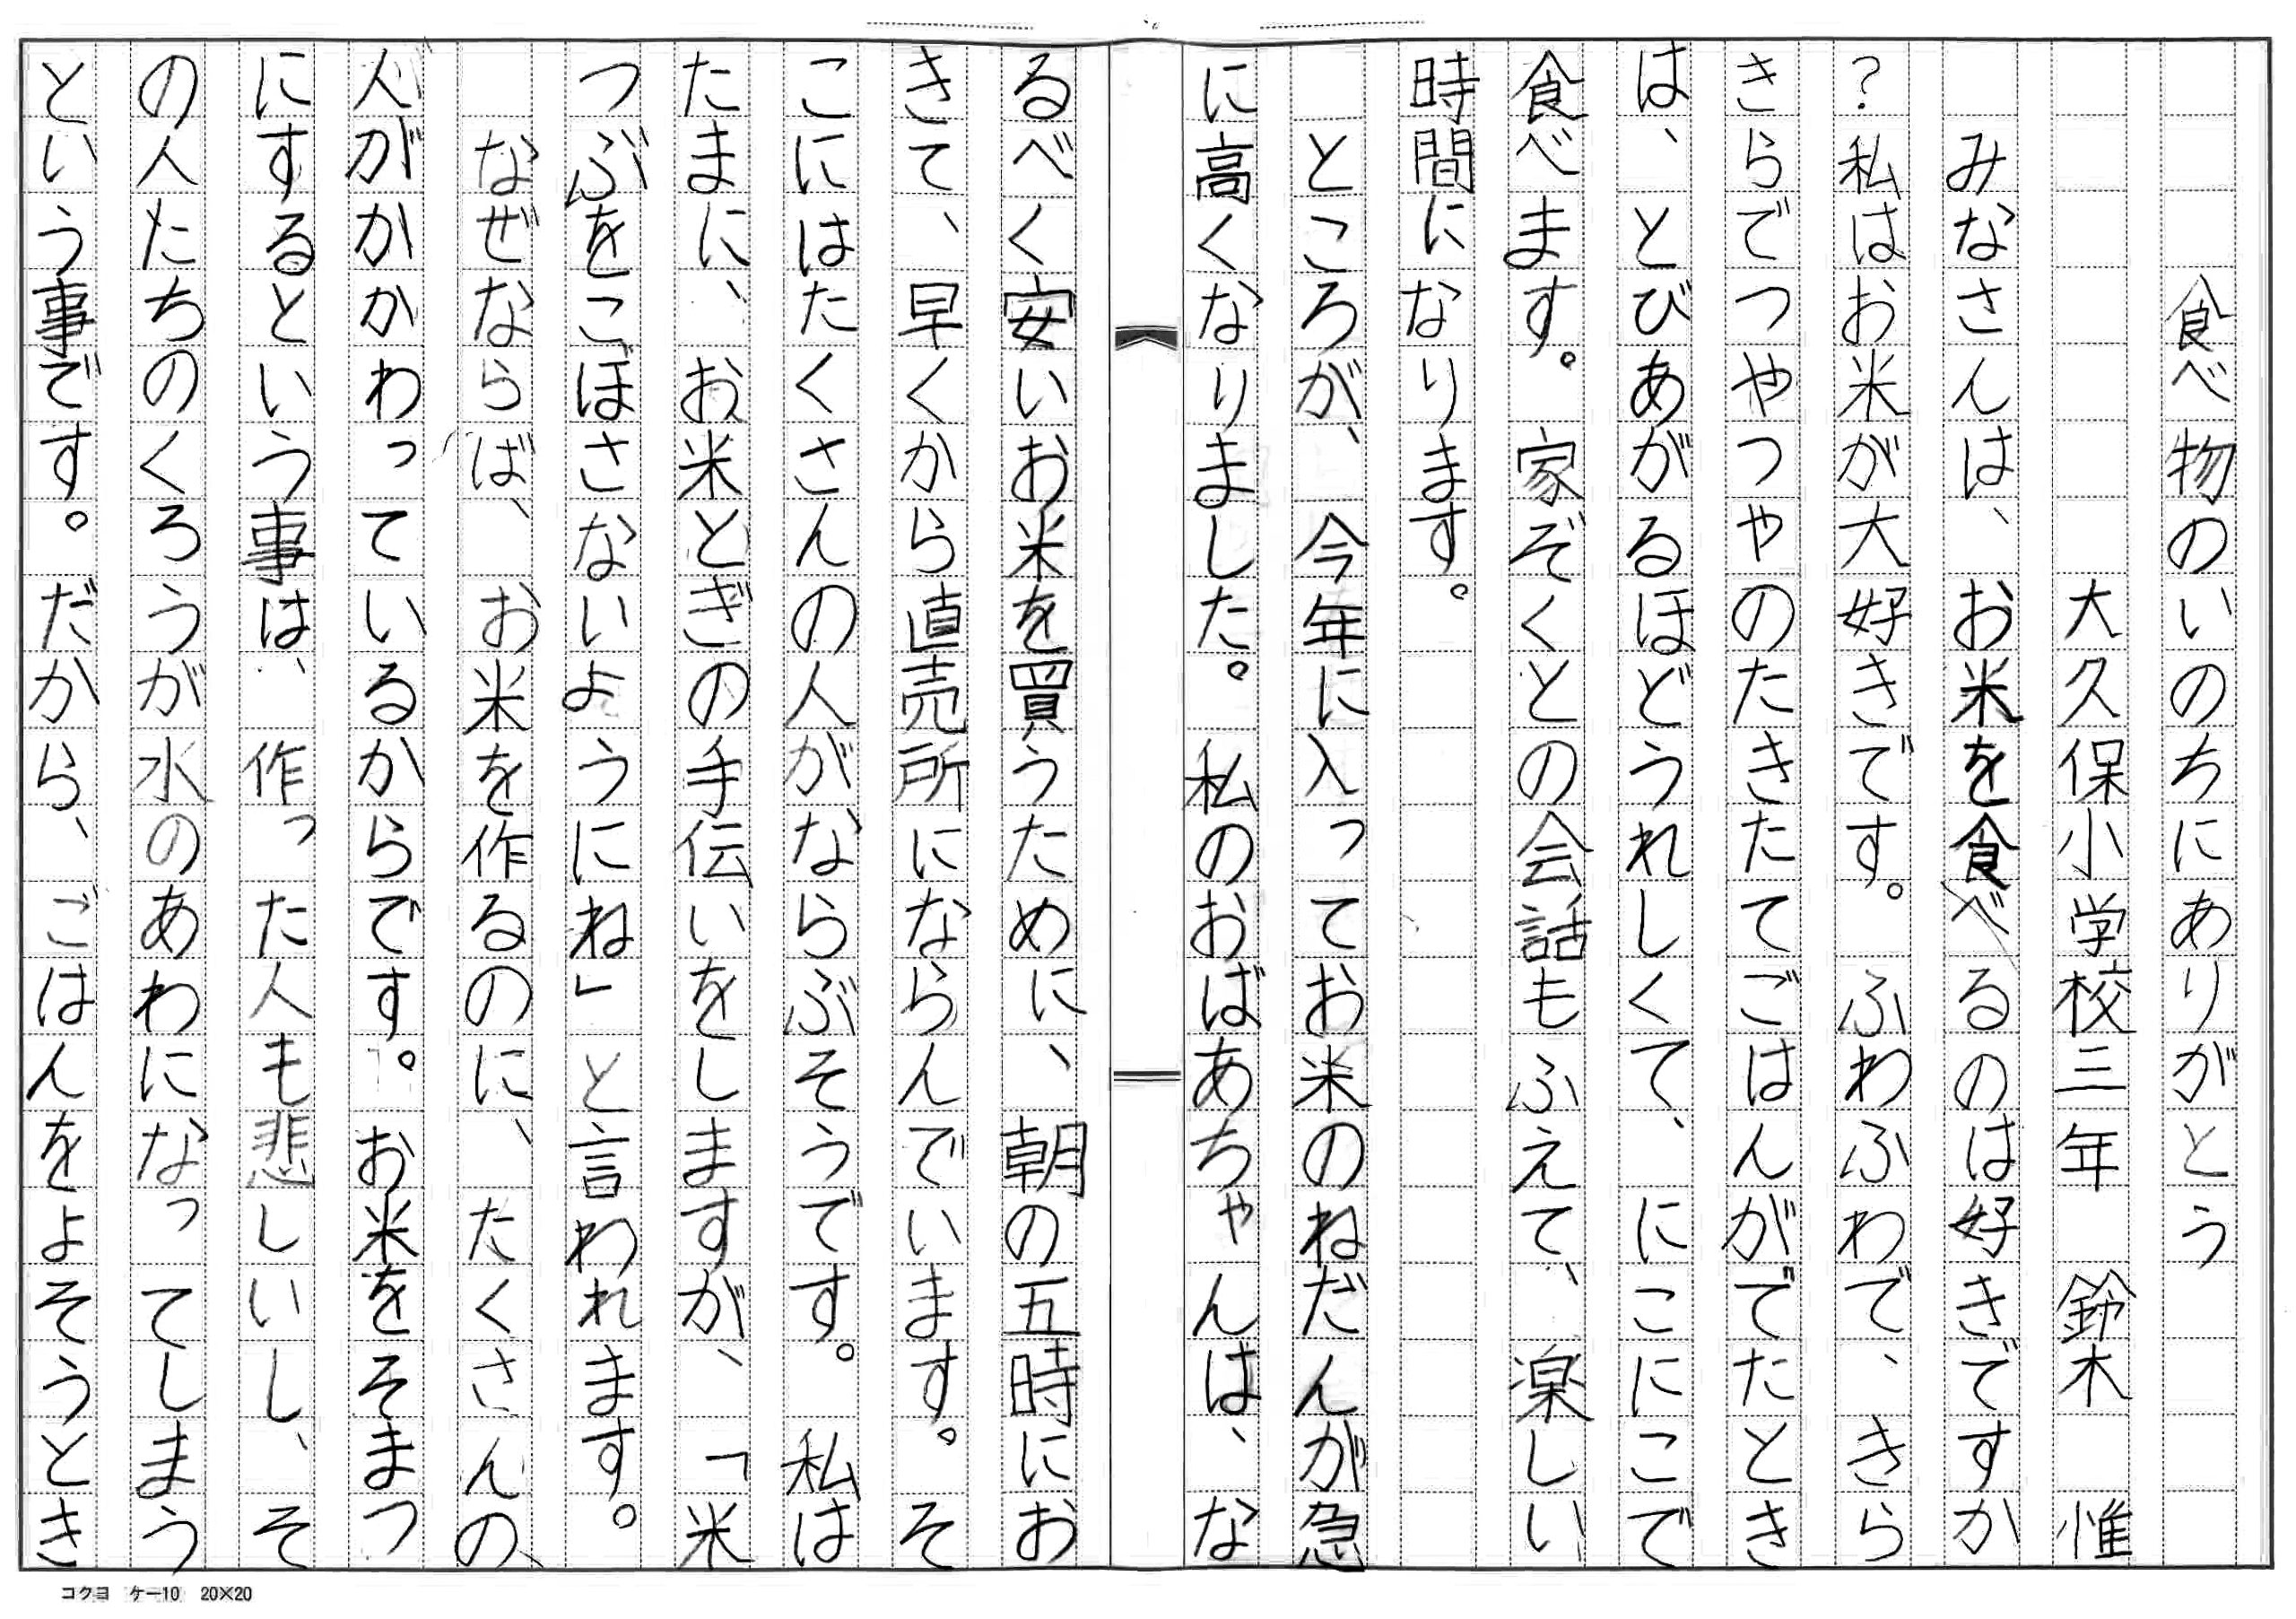 食べ物のいのちにありがとう
大久保小学校三年　鈴木　惟
みなさんは、お米を食べるのは好きですか
？私はお米が大好きです。ふわふわで、きら
きらでつやつやのたきたてごはんがでたとき
は、とびあがるほどうれしくて、にこにこで
食べます。家ぞくとの会話もふえて、楽しい
時間になります。
ところが、今年に入ってお米のねだんが急
に高くなりました。私のおばあちゃんは、な
るべく安いお米を買うために、朝の五時にお
きて、早くから直売所にならんでいます。そ
こにはたくさんの人がならぶそうです。私は
たまに、お米とぎの手伝いをしますが、「米
つぶをこぼさないようにね」と言われます。
なぜならば、お米を作るのに、たくさんの
人がかかわっているからです。お米をそまつ
にするという事は、作った人も悲しいし、そ
の人たちのくろうが水のあわになってしまう
という事です。だから、ごはんをよそうとき
コクヨ　ケー10　20×20